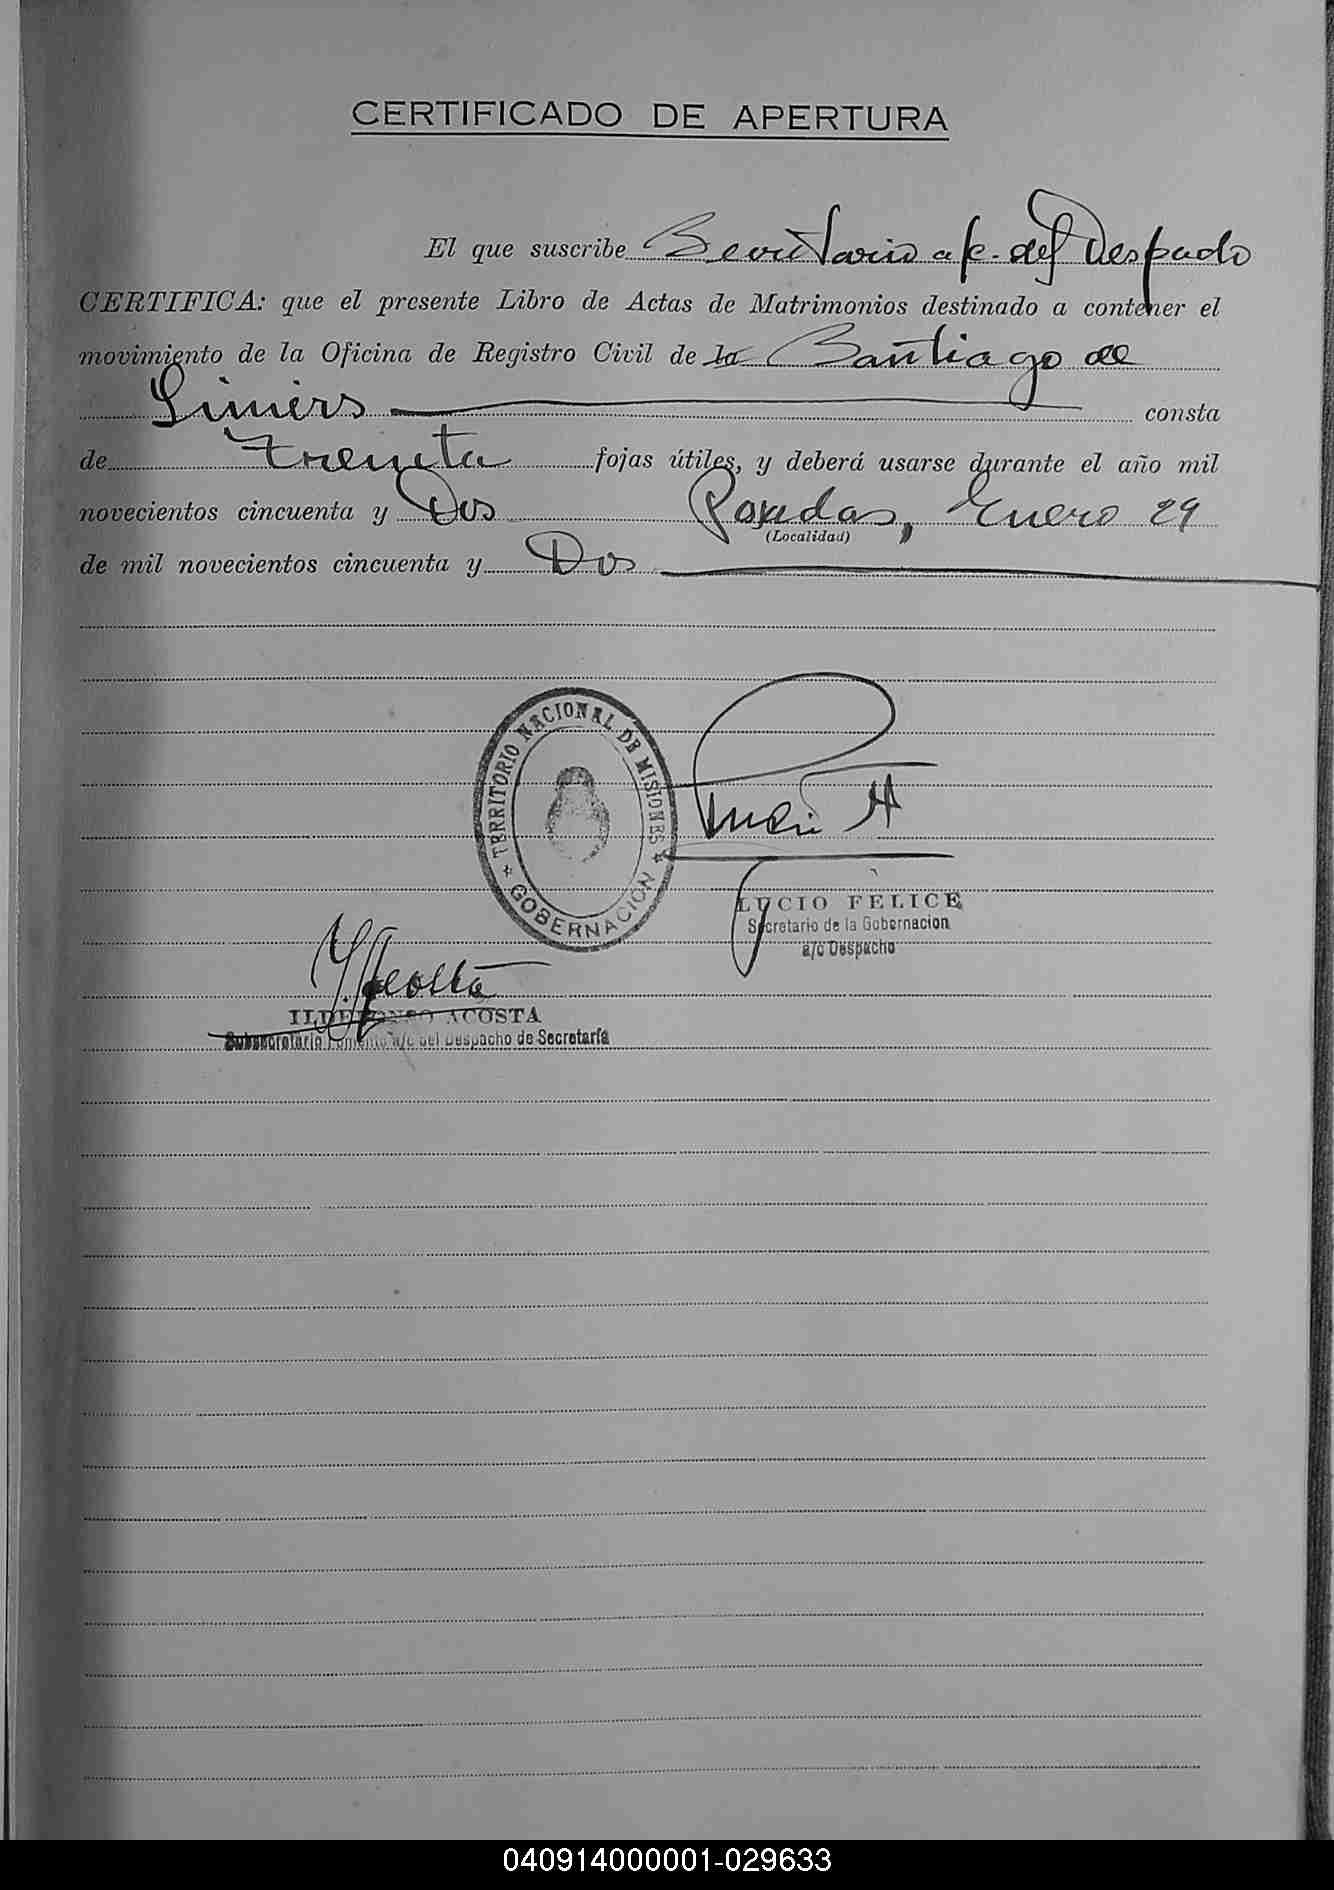 CERTIFICADO DE APERTURA
El que suscribe Secretario a/c. del Despacho
CERTIFICA: que el presente Libro de Actas de Matrimonios destinado a contener el
movimiento de la Oficina de Registro Civil de la Santiago de
Liniers consta
de treinta fojas útiles, y deberá usarse durante el año mil
novecientos cincuenta y Dos Posadas, Enero 29
(Localidad)
de mil novecientos cincuenta y Dos
TERRITORIO NACIONAL DE MISIONES
GOBERNACION
LUCIO FELICE
Secretario de la Gobernacion
a/c Despacho
I. Acosta
ILDEFONSO ACOSTA
Subsecretario Fomento a/c del Despacho de Secretaría
040914000001-029633